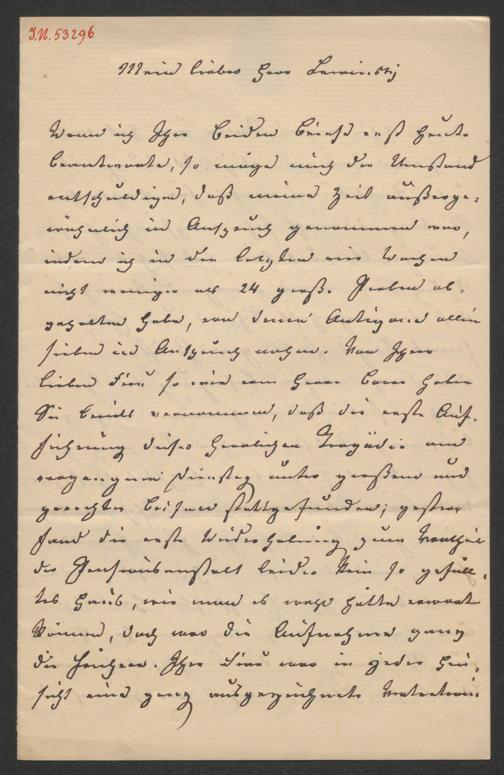 I.N. 53296
Mein lieber Herr Lewinskij
Wenn ich Ihre beiden Briefe erst heute
beantworte, so möge mich der Umstand
entschuldigen, daß meine Zeit außerge-
wöhnlich in Anspruch genommen war,
indem ich in den letzten vier Wochen
nicht weniger als 24 große Proben ab-
gehalten habe, von denen Antigone allein
sieben in Anspruch nahm. Von Ihrer
lieben Frau so wie vom Herrn haben
Sie bereits vernommen, daß die erste Auf-
führung dieser herrlichen Tragödie am
vergangenen Dienstag unter großem und
gerechten Beifall stattgefunden; gestern
fand die erste Wiederholung zum Vortheil
der Pensionsanstalt leider kein so gefüll-
tes Haus, wie man es wohl hätte erwarten
können, doch war die Aufnahme ganz
die frühere. Ihre Frau war in jeder Hin-
sicht eine ganz ausgezeichnete Vertreterin